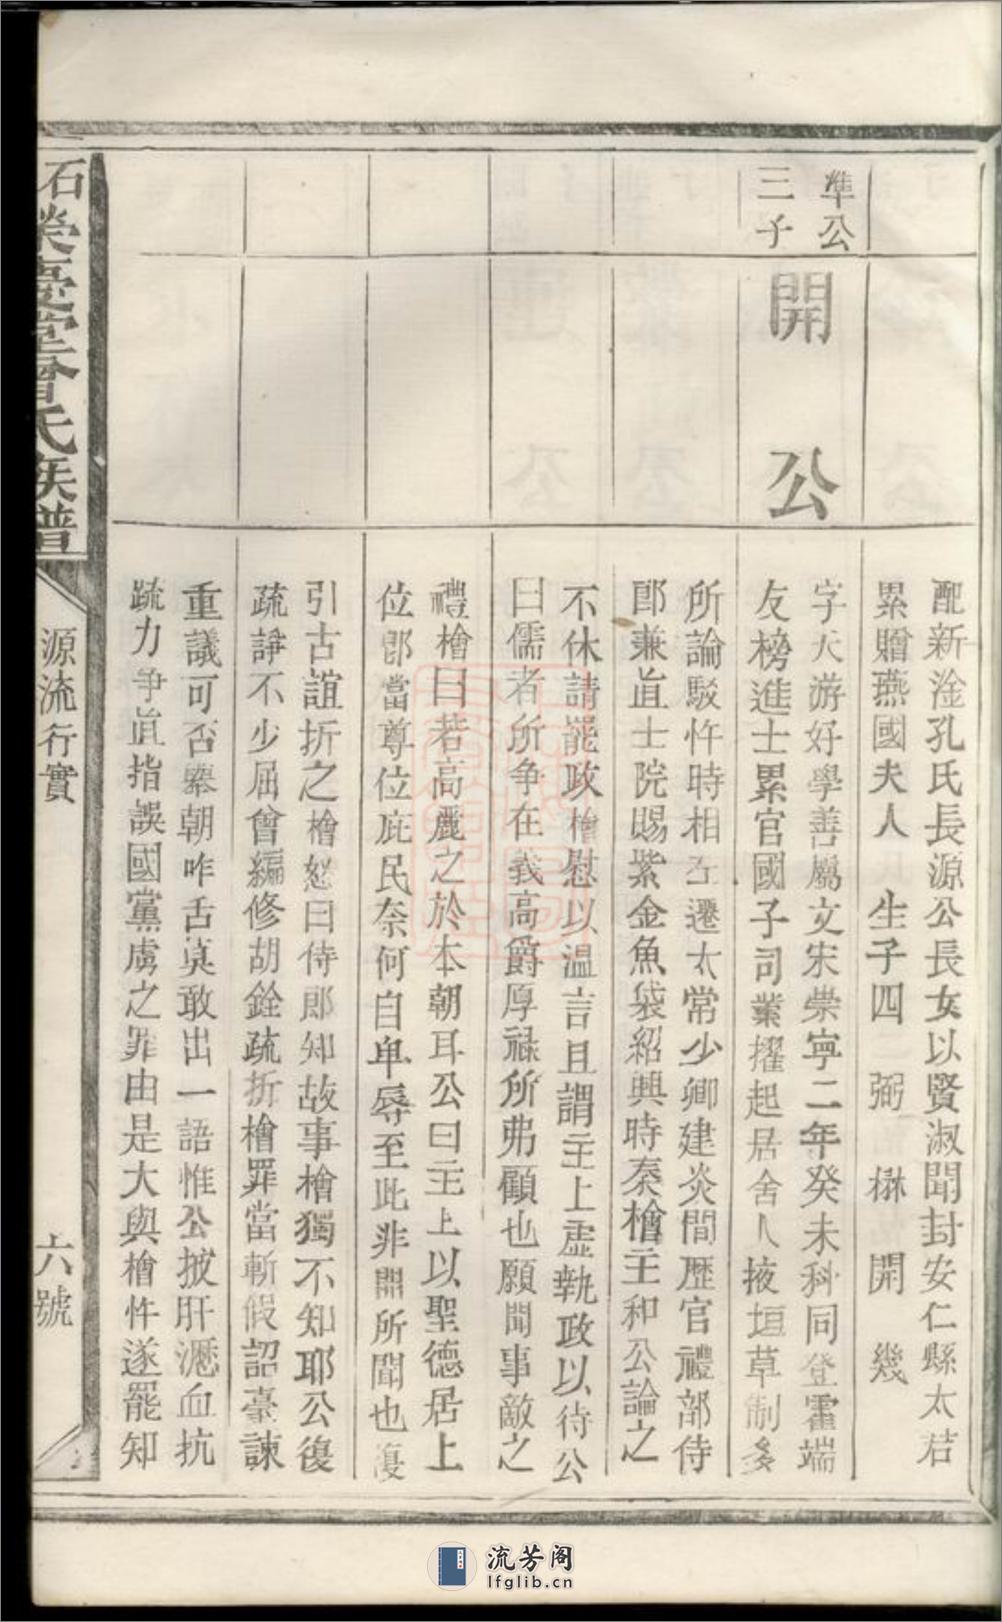 配新淦孔氏長源公長女以賢淑聞封安仁縣太君
累贈燕國夫人　生子四　弼　楙　開　幾
準公
三子
開公
字天游好學善屬文宋崇寧二年癸未科同登霍端
友榜進士累官國子司業擢起居舍人掖垣草制多
所論駁忤時相左遷太常少卿建炎間歷官禮部侍
郎兼直士院賜紫金魚袋紹興時秦檜主和公論之
不休請罷政檜慰以温言且謂主上虛執政以待公
曰儒者所争在義高爵厚祿所弗顧也願聞事敵之
禮檜曰若高麗之於本朝耳公曰主上以聖德居上
位郎當尊位庇民奈何自卑辱至此非開所聞也復
引古誼折之檜怒曰侍郎知故事檜獨不知耶公復
疏諍不少屈會編修胡銓疏折檜罪當斬假詔臺諫
重議可否舉朝咋舌莫敢出一語惟公披肝瀝血抗
疏力争直指誤國黨虜之罪由是大與檜忤遂罷知
石榮臺堂曾氏族譜
源流行實
六號
流芳阁
lfglib.cn